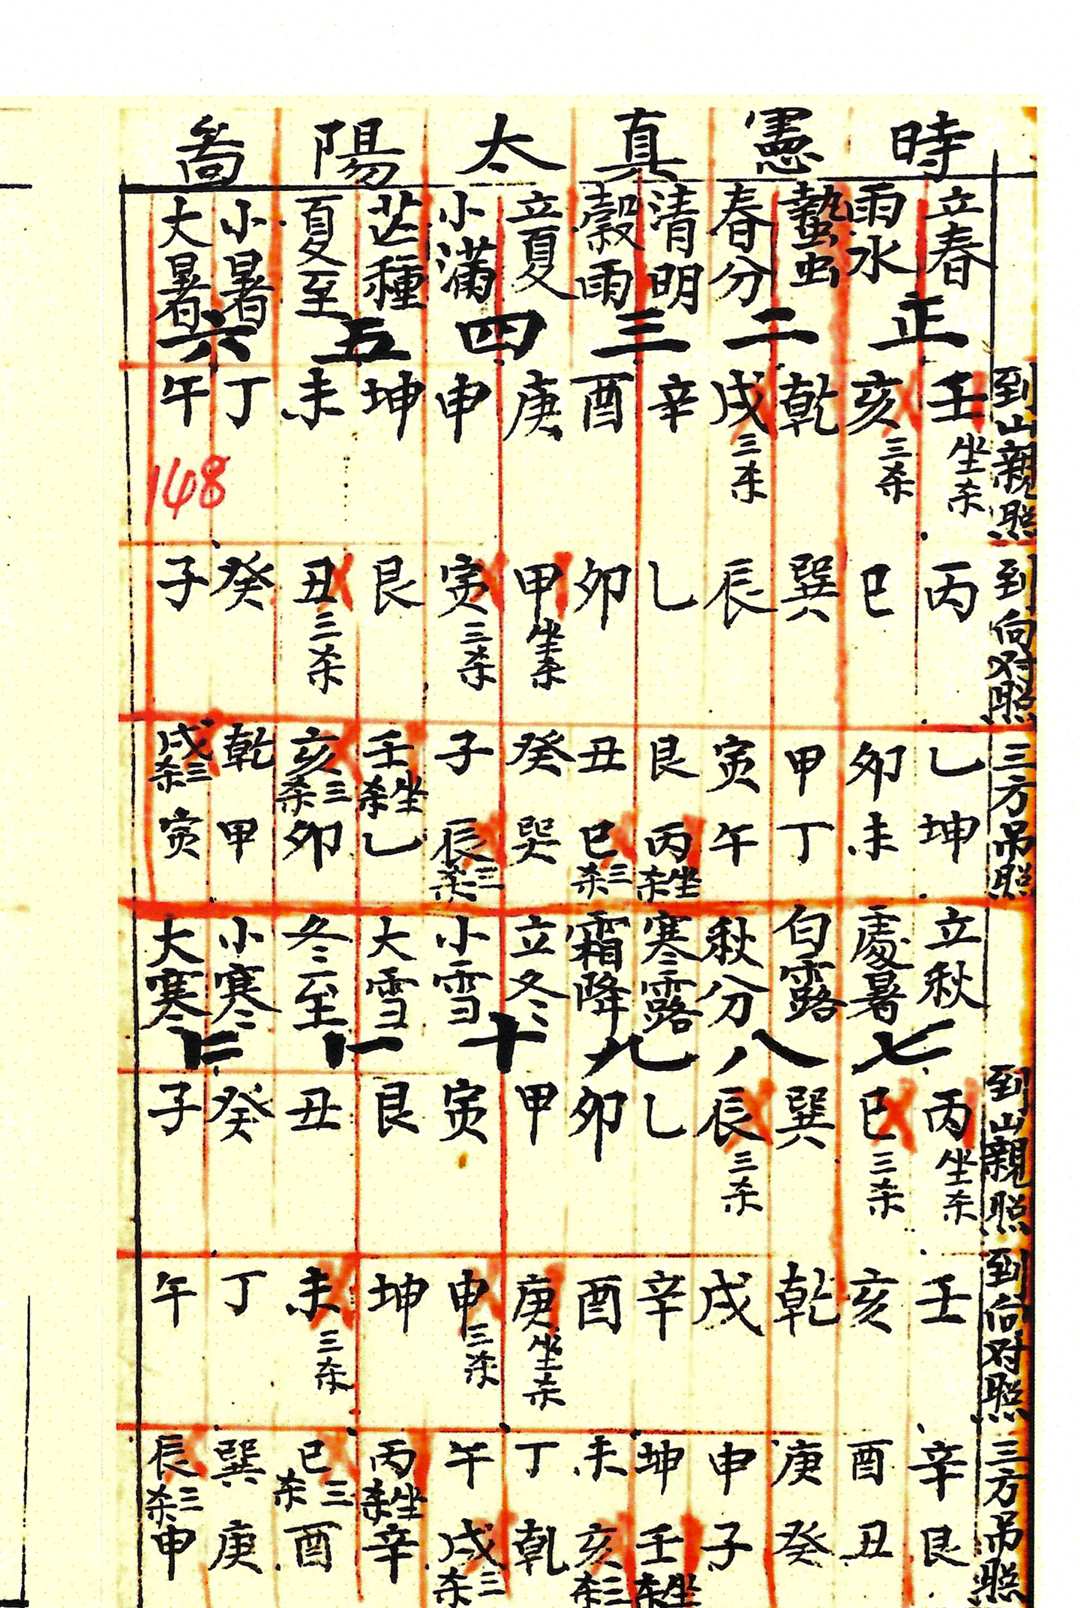 時憲真太陽啚
立春 雨水 蟄虫 春分 清明 穀雨 立夏 小滿 芒種 夏至 小暑 大暑
正 二 三 四 五 六
到山親照 壬 亥 乾 戌 辛 酉 庚 申 坤 未 丁 午
坐杀 三杀 三杀
148
到向对照 丙 巳 巽 辰 乙 卯 甲 寅 艮 丑 癸 子
坐杀 三杀 三杀
三方吊照 乙 卯 甲 寅 艮 丑 癸 子 壬 亥 乾 戌
坐杀 三杀 三杀
坤 未 丁 午 丙 巳 巽 辰 乙 卯 甲 寅
坐杀 三杀 三杀
立秋 處暑 白露 秋分 寒露 霜降 立冬 小雪 大雪 冬至 小寒 大寒
七 八 九 十 十一 十二
到山親照 丙 巳 巽 辰 乙 卯 甲 寅 艮 丑 癸 子
坐杀 三杀 三杀
到向对照 壬 亥 乾 戌 辛 酉 庚 申 坤 未 丁 午
坐杀 三杀 三杀
三方吊照 辛 酉 庚 申 坤 未 丁 午 丙 巳 巽 辰
坐杀 三杀 三杀
艮 丑 癸 子 壬 亥 乾 戌 辛 酉 庚 申
坐杀 三杀 三杀